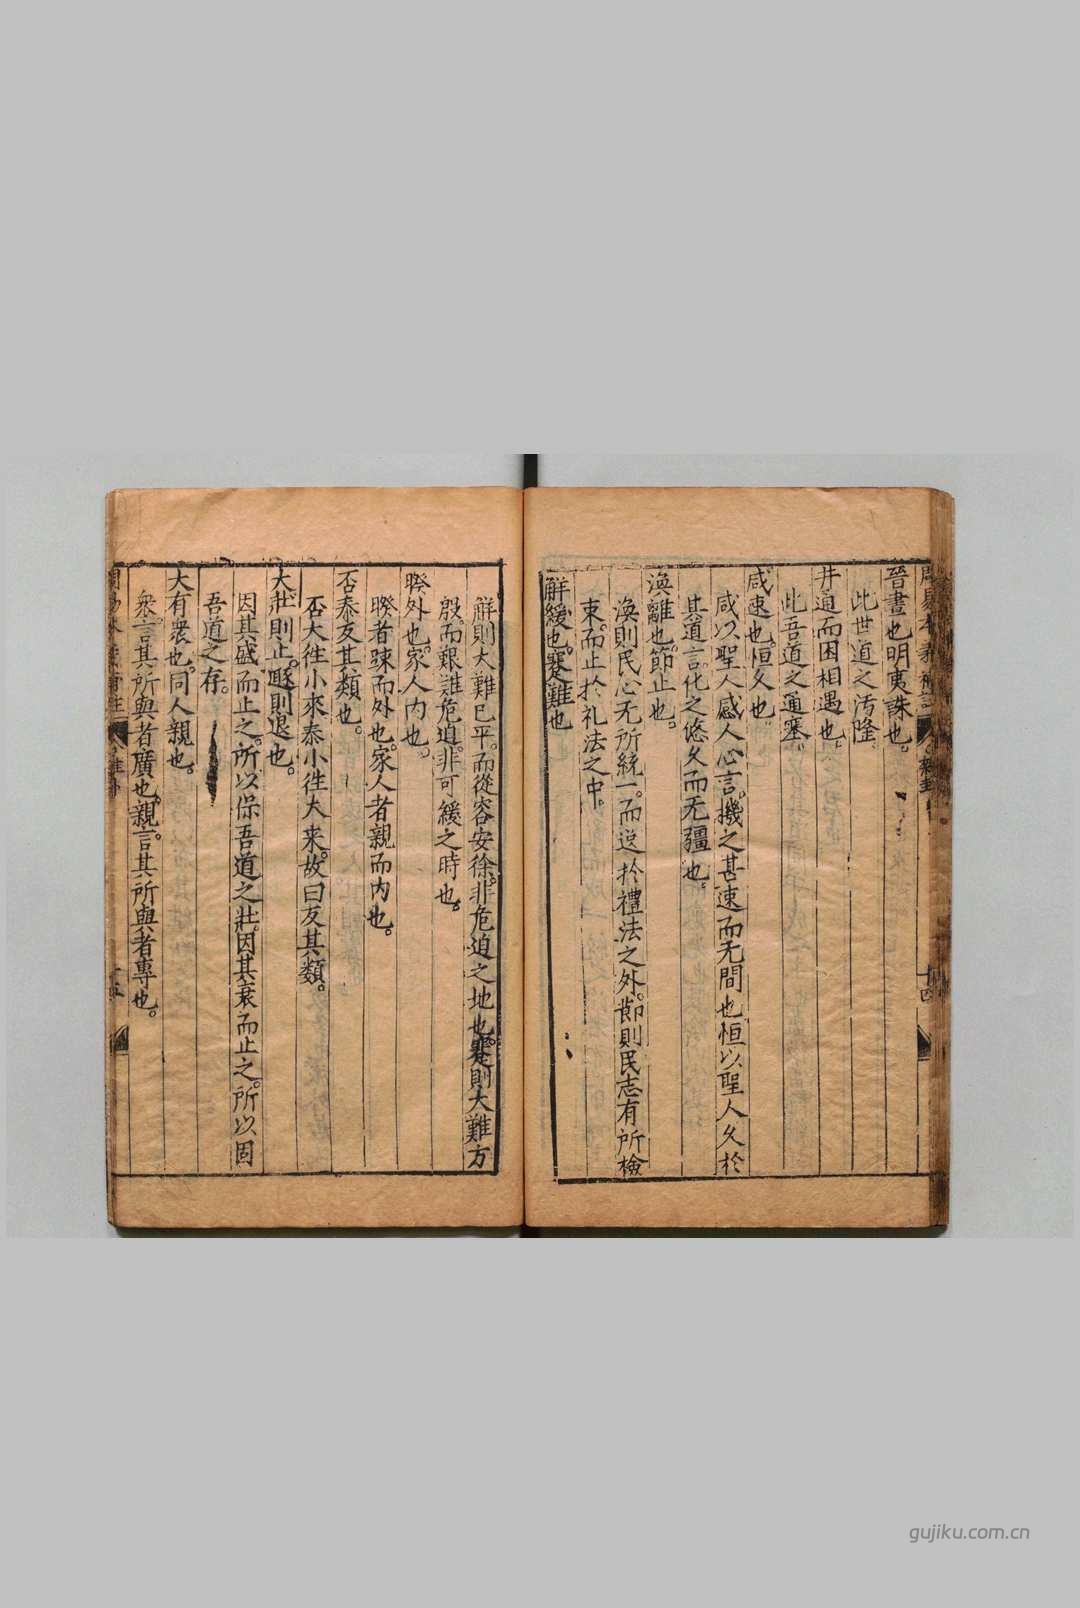 晉晝也明夷誅也。
此世道之汚隆
井通而困相遇也
此吾道之通塞
咸速也。恒久也
咸以聖人感人心言。機之甚速而无間也恒以聖人久於
其道言。化之悠久而无疆也。
渙離也。節止也。
渙則民心无所統一。而逸於禮法之外。節則民志有所檢
束。而止於礼法之中。
解緩也。蹇難也
解則大難已平。而從容安徐。非危迫之地也。蹇則大難方
殷。而艱誰危迫。非可緩之時也。
睽外也。家人内也。
睽者踈而外也。家人者親而内也。
否泰反其類也。
否大徃小來泰小徃大来。故曰反其類。
大壯則止。遯則退也。
因其盛而止之。所以保吾道之壯。因其衰而止之。所以固
吾道之存。
大有衆也。同人親也。
衆。言其所與者廣也。親。言其所與者專也。
gujiku.com.cn